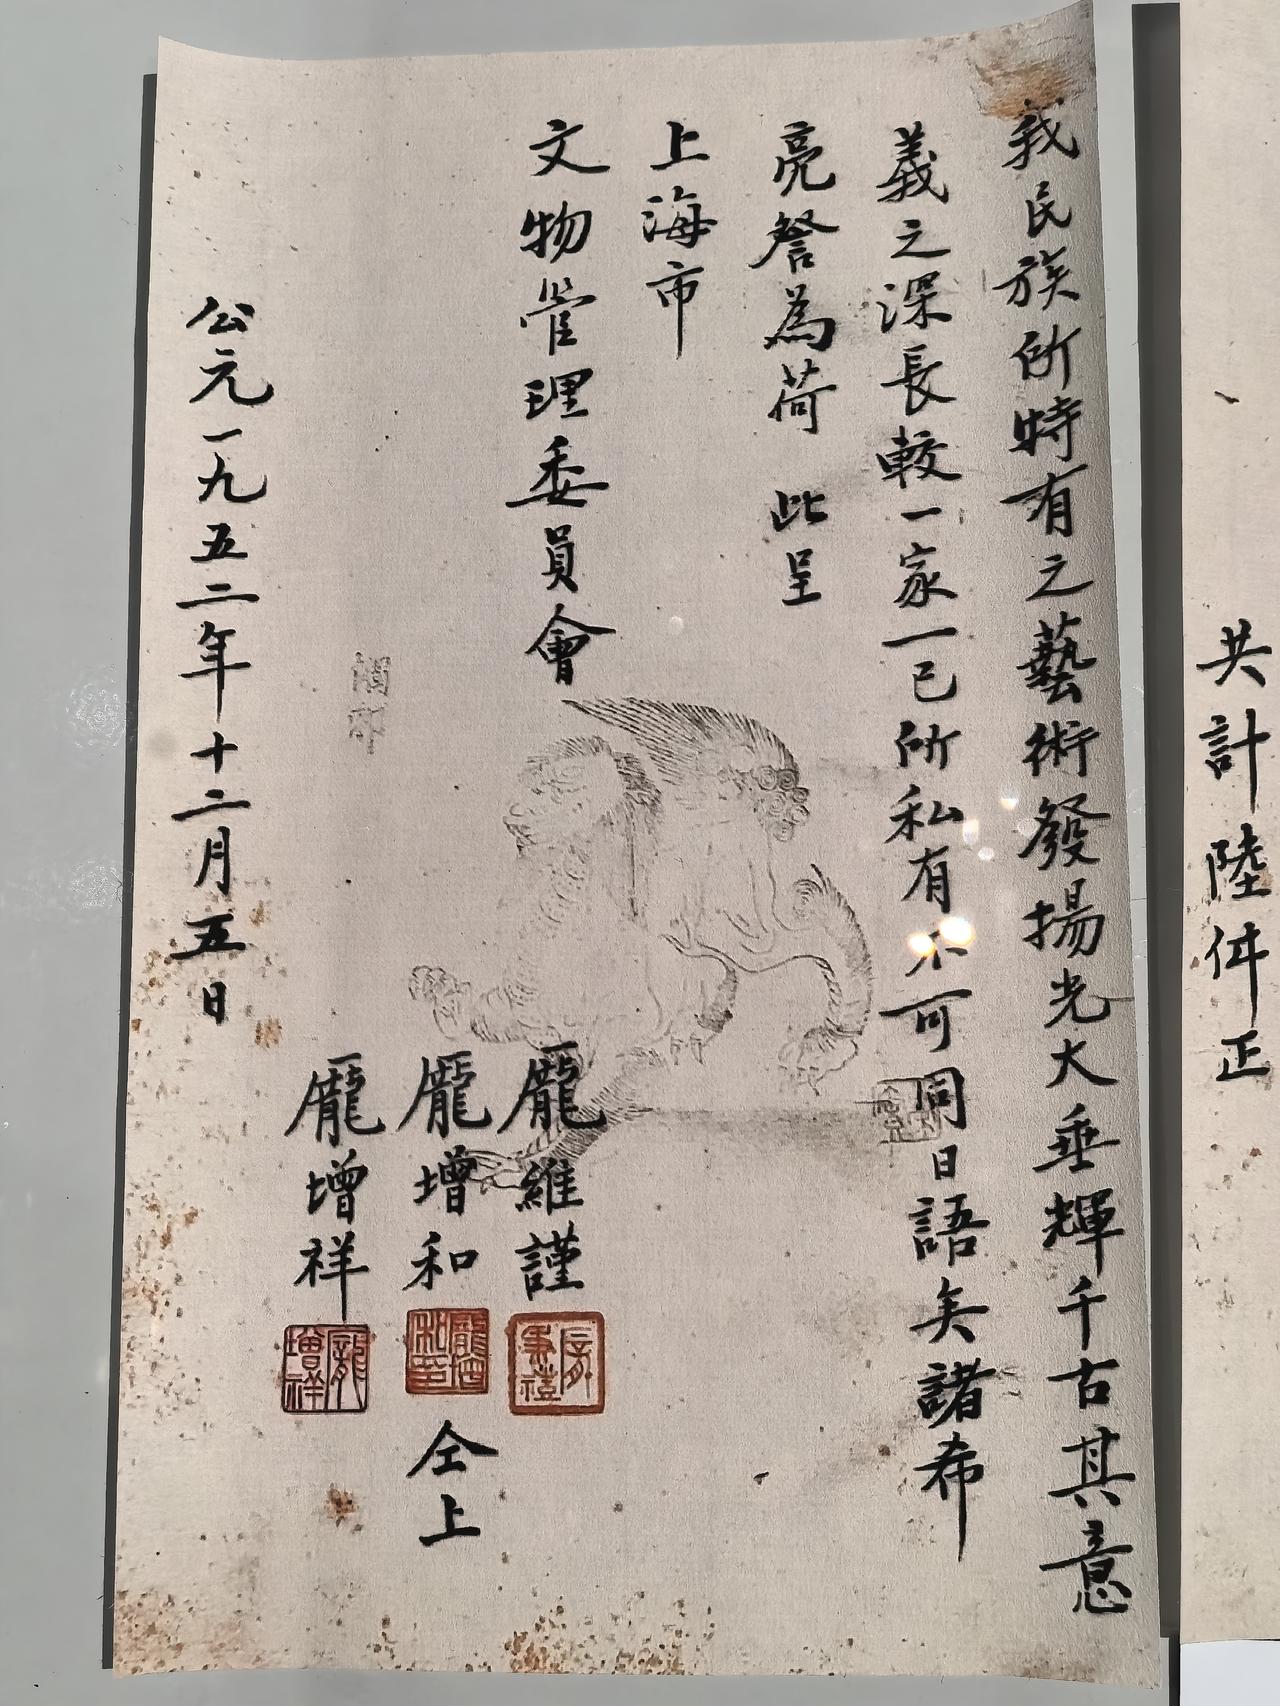 共計陸件正
我民族所特有之藝術發揚光大垂輝千古其意
義之深長較一家一己所私有不可同日語矣諸希
亮詧為荷 此呈
上海市
文物管理委員會
龐維謹
龐增和
龐增和印
仝上
龐增祥
龐增祥
公元一九五二年十二月五日